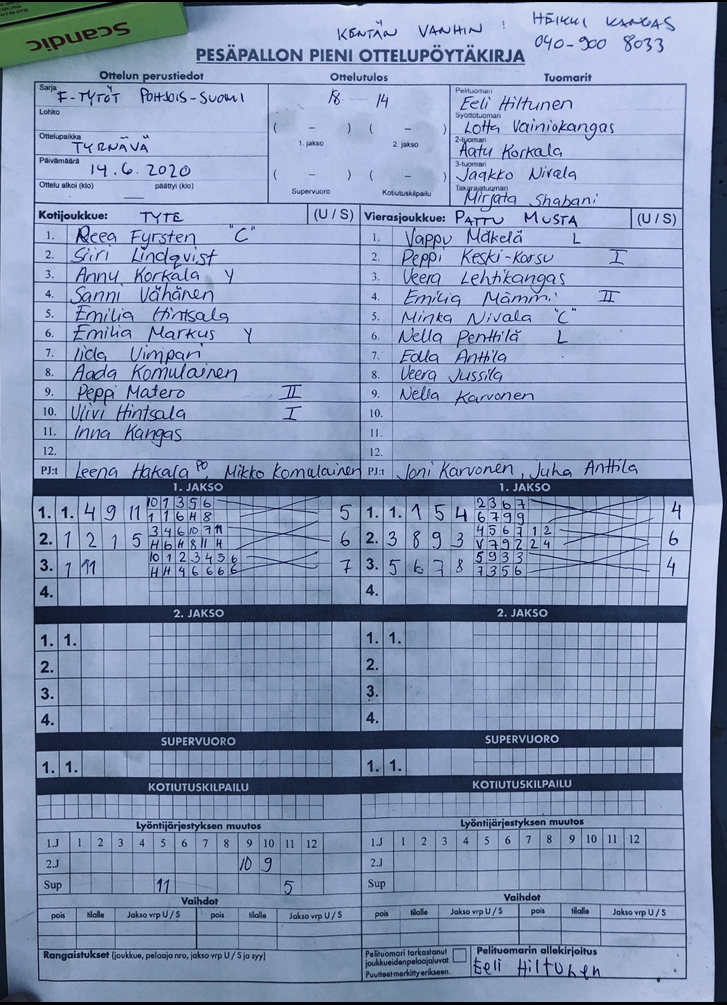 Scandic
KENTÄN VANHIN : HEIKKI KANGAS
040-900 8033
PESÄPALLON PIENI OTTELUPÖYTÄKIRJA
Ottelun perustiedot
Sarja F-TYTÖT POHJOIS-SUOMI
Lohko
Ottelupaikka TYRNÄVÄ
Päivämäärä 14.6.2020
Ottelu alkoi (klo) päättyi (klo)
Ottelutulos
18 - 14
( - ) ( - )
1. jakso 2. jakso
( - ) ( - )
Supervuoro Kotiutuskilpailu
Tuomarit
Pelituomari Eeli Hiltunen
Syöttötuomari Lotta Vainiokangas
2-tuomari Aatu Korkala
3-tuomari Jaakko Nivala
Takarajatuomari Mirjata Shabani
Kotijoukkue: TYTE (U / S)
1. Reea Fyrsten "C"
2. Siiri Lindqvist
3. Annu Korkala Y
4. Sanni Vähänen
5. Emilia Hintsala
6. Emilia Markus Y
7. Iida Vimpari
8. Aada Komulainen
9. Peppi Matero II
10. Viivi Hintsala I
11. Inna Kangas
12.
PJ:t Leena Hakala PO Mikko Komulainen
Vierasjoukkue: PATTU MUSTA (U / S)
1. Vappu Mäkelä L
2. Peppi Keski-Korsu I
3. Veera Lehtikangas
4. Emilia Mämmi II
5. Minka Nivala "C"
6. Nella Penttilä L
7. Edla Anttila
8. Veera Jussila
9. Nella Karvonen
10.
11.
12.
PJ:t Joni Karvonen, Juha Anttila
1. JAKSO
1. 1. 4 9 11 10 1 3 5 6 5
1 1 6 H 8
2. 1 2 1 5 3 4 6 10 7 11 6
H 6 H 8 11 H
3. 1 11 10 1 2 3 4 5 6 7
H H 4 6 6 6 6
4.
1. JAKSO
1. 1. 1 5 4 2 3 6 7 4
6 7 9 9
2. 3 8 9 3 4 5 6 7 1 2 6
V 7 9 2 2 4
3. 5 6 7 8 5 9 3 3 4
7 3 5 6
4.
2. JAKSO
1. 1.
2.
3.
4.
2. JAKSO
1. 1.
2.
3.
4.
SUPERVUORO
1. 1.
SUPERVUORO
1. 1.
KOTIUTUSKILPAILU
KOTIUTUSKILPAILU
Lyöntijärjestyksen muutos
1.J 1 2 3 4 5 6 7 8 9 10 11 12
2.J 10 9
Sup 11 5
Lyöntijärjestyksen muutos
1.J 1 2 3 4 5 6 7 8 9 10 11 12
2.J
Sup
Vaihdot
pois tilalle Jakso vrp U / S pois tilalle Jakso vrp U / S
Vaihdot
pois tilalle Jakso vrp U / S pois tilalle Jakso vrp U / S
Rangaistukset (joukkue, pelaaja nro, jakso vrp U / S ja syy)
Pelituomari tarkastanut
joukkueidenpelaajaluvat.
Puutteet merkitty erikseen.
Pelituomarin allekirjoitus
Eeli Hiltunen